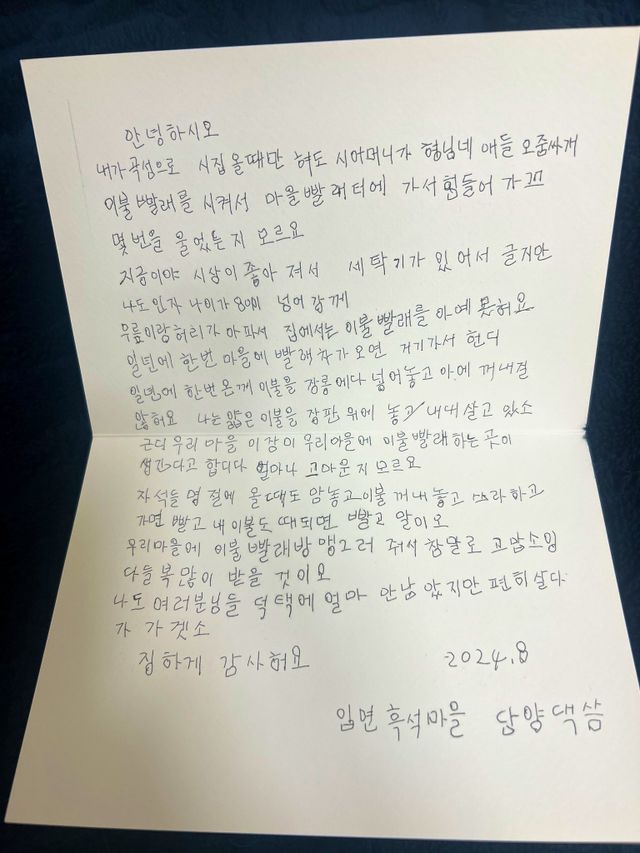 안녕하시오
내가곡성으로 시집 올때만 혀도 시어머니가 형님네 애들 오줌싸개
이불 빨래를 시켜서 마을빨래터에 가서 힘들어 가꼬
몇번을 울었는지 모르요
지금이야 시상이 좋아 져서 세탁기가 있어서 글지만
나도 인자 나이가 80이 넘어 감께
무릎이랑허리가 아파서 집에서는 이불빨래를 아예 못혀요
일년에 한번 마을에 빨래차가 오면 거기가서 헌디
일년에 한번온게 이불을 장롱에다 넣어놓고 아예 꺼내질
않혀요 나는 얇은 이불을 장판 위에 놓고 내내 살고 있소
근디 우리 마을 이장이 우리마을에 이불빨래하는 곳이
생긴다고 합디다 얼마나 고마운지 모르요
자석들 명절에 올때도 맘놓고 이불 꺼내 놓고 쓰라하고
가면 빨고 내 이불도 때되면 빨고 말이오
우리마을에 이불 빨래방 맹그러 줘서 참말로 고맙소잉
다들 복많이 받을 것이오
나도 여러분님들 덕택에 얼마 안남았지만 편히살다
가 가겟소
징하게 감사혀요 2024.8
입면 흑석마을 담양댁 씀